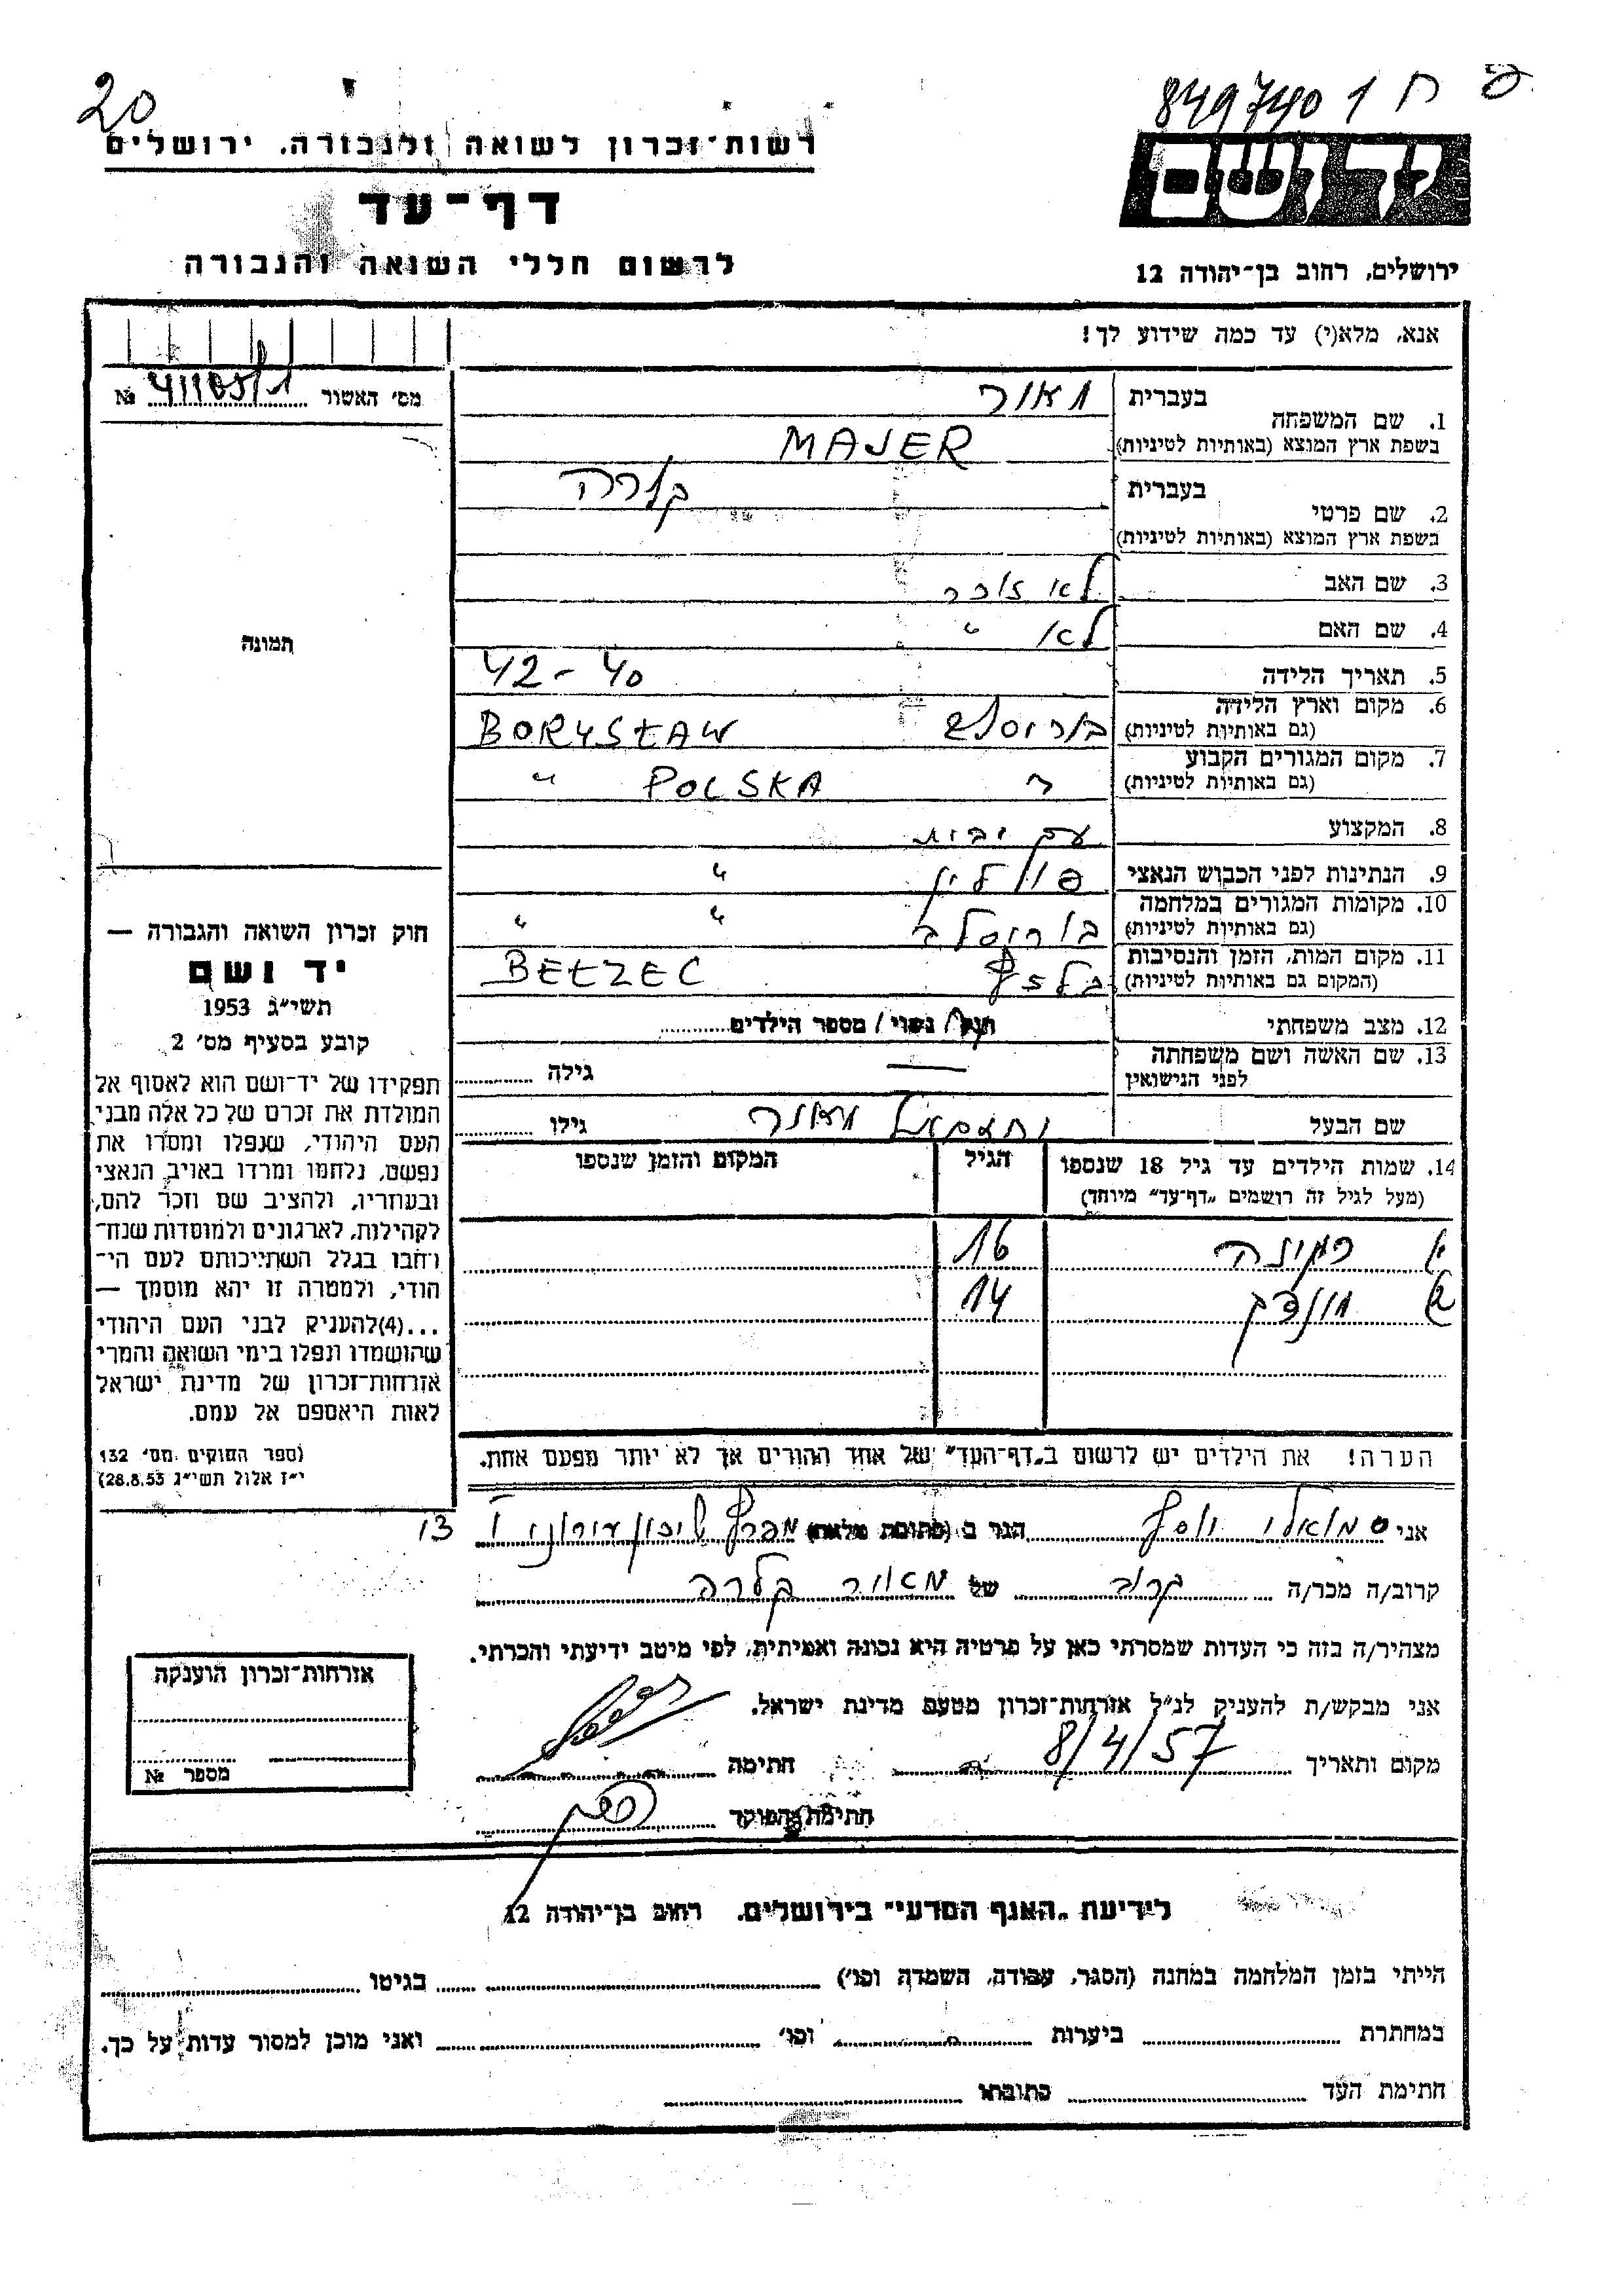 20
849740 1 ח פ
רשות־זכרון לשואה ולגבורה, ירושלים
דף־עד
לרשום חללי השואה והגבורה
יד ושם
ירושלים, רחוב בן־יהודה 12
אנא, מלא(י) עד כמה שידוע לך!
מס׳ האשור № 41105/1
1. שם המשפחה בעברית מאור
בשפת ארץ המוצא (באותיות לטיניות) MAJER
2. שם פרטי בעברית קלרה
בשפת ארץ המוצא (באותיות לטיניות)
3. שם האב לא זוכר
4. שם האם לא "
5. תאריך הלידה 40 – 42
6. מקום וארץ הלידה (גם באותיות לטיניות) בוריסלב BORYSŁAW
7. מקום המגורים הקבוע (גם באותיות לטיניות) " POLSKA "
8. המקצוע עק. בית
9. הנתינות לפני הכבוש הנאצי פולין "
10. מקומות המגורים במלחמה (גם באותיות לטיניות) בוריסלב " "
11. מקום המות, הזמן והנסיבות (המקום גם באותיות לטיניות) בלזץ BEŁZEC
12. מצב משפחתי רווק / נשוי / מספר הילדים
13. שם האשה ושם משפחתה לפני הנישואין — גילה
שם הבעל מאור גילו
14. שמות הילדים עד גיל 18 שנספו הגיל המקום והזמן שנספו
(מעל לגיל זה רושמים „דף־עד״ מיוחד)
א 16
ב 14
תמונה
חוק זכרון השואה והגבורה —
יד ושם
תשי״ג 1953
קובע בסעיף מס׳ 2
תפקידו של יד־ושם הוא לאסוף אל
המולדת את זכרם של כל אלה מבני
העם היהודי, שנפלו ומסרו את
נפשם, נלחמו ומרדו באויב הנאצי
ובעוזריו, ולהציב שם וזכר להם,
לקהילות, לארגונים ולמוסדות שנח־
רחבו בגלל השתייכותם לעם הי־
הודי, ולמטרה זו יהא מוסמך —
...(4)להעניק לבני העם היהודי
שהושמדו ונפלו בימי השואה והמרי
אזרחות־זכרון של מדינת ישראל
לאות היאספם אל עמם.
(ספר החוקים מס׳ 132
י״ז אלול תשי״ג 28.8.53)
הערה! את הילדים יש לרשום ב„דף־העד״ של אחד ההורים אך לא יותר מפעם אחת.
אני סמואלי יוסף הגר ב (כתובת מלאה) מפרץ שיכון עירוני I 13
קרוב/ה מכר/ה קרוב של מאור קלרה
מצהיר/ה בזה כי העדות שמסרתי כאן על פרטיה היא נכונה ואמיתית, לפי מיטב ידיעתי והכרתי.
אני מבקש/ת להעניק לנ״ל אזרחות־זכרון מטעם מדינת ישראל.
מקום ותאריך 8/4/57 חתימה
חתימת הפוקד
אזרחות־זכרון הוענקה
מספר №
לידיעת „האגף המדעי״ בירושלים, רחוב בן־יהודה 12
הייתי בזמן המלחמה במחנה (הסגר, עבודה, השמדה וכו׳) בגיטו
במחתרת ביערות וכו׳ ואני מוכן למסור עדות על כך.
חתימת העד כתובתו